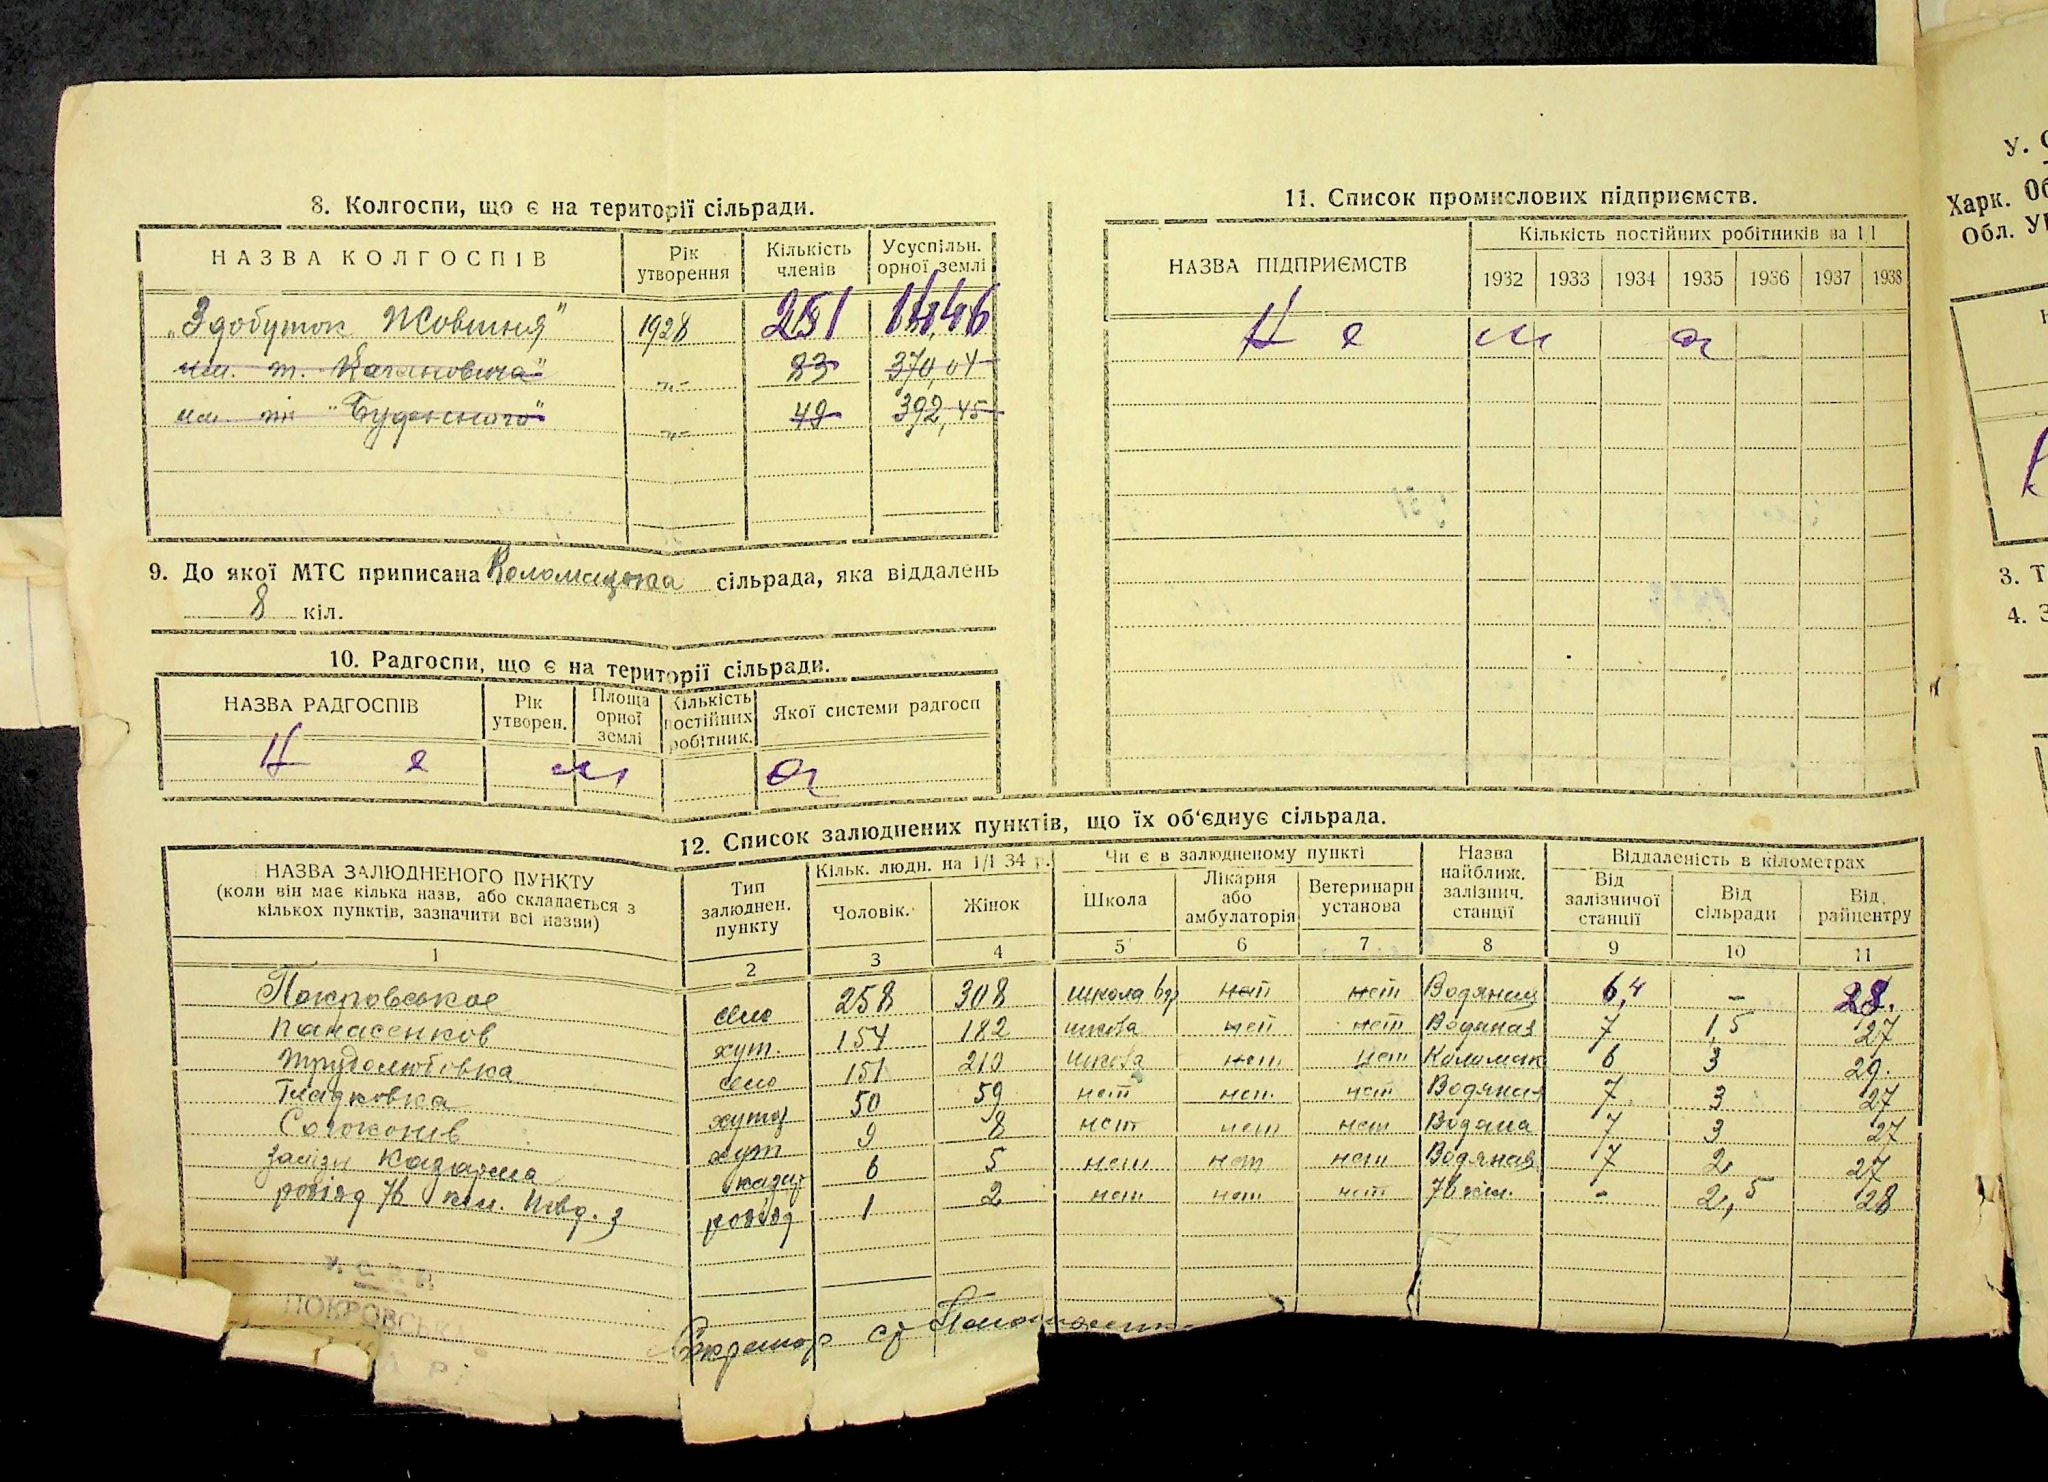 8. Колгоспи, що є на території сільради.
НАЗВА КОЛГОСПІВ Рік утворення Кількість членів Усуспільн. орної землі
„Здобуток Жовтня" 1928 251
им. т. Кагановича" -"- 83 370,04
им. т "Буденного" -"- 49 392,45
9. До якої МТС приписана Коломацька сільрада, яка віддалень
8 кіл.
10. Радгоспи, що є на території сільради.
НАЗВА РАДГОСПІВ Рік утворен. Площа орної землі Кількість постійних робітник. Якої системи радгосп
Н е м а
11. Список промислових підприємств.
НАЗВА ПІДПРИЄМСТВ Кількість постійних робітників на 1/I
1932 1933 1934 1935 1936 1937 1938
Н е м а
12. Список залюднених пунктів, що їх об'єднує сільрада.
НАЗВА ЗАЛЮДНЕНОГО ПУНКТУ (коли він має кілька назв, або складається з кількох пунктів, зазначити всі назви) Тип залюднен. пункту Кільк. людн. на 1/I 34 р. Чи є в залюдненому пункті Назва найближ. залізнич. станції Віддаленість в кілометрах
Чоловік. Жінок Школа Лікарня або амбулаторія Ветеринарн установа Від залізничої станції Від сільради Від райцентру
1 2 3 4 5 6 7 8 9 10 11
Покровськое село 258 308 школа нет нет 6,4 - 28.
Панасенков хут. 154 182 школа нет нет Водяная 7 1,5 27
Трудолюбовка село 151 210 школа нет нет Коломак 6 3 29.
Гладковка 50 59 нет нет. нет Водяная 7 3 27
хут 9 8 нет нет нет Водяна 7 3 27
залізн казарма казар 6 5 нет нет нет Водяная 7 2 27
розізд 76 клм. Півд. з розізд 1 2 нет нет нет 76 клм. - 2,5 28
У С Р Р
ПОКРОВСЬКА
Секретар с/
У. С
Харк. Об
Обл. У
3. Т
4. З